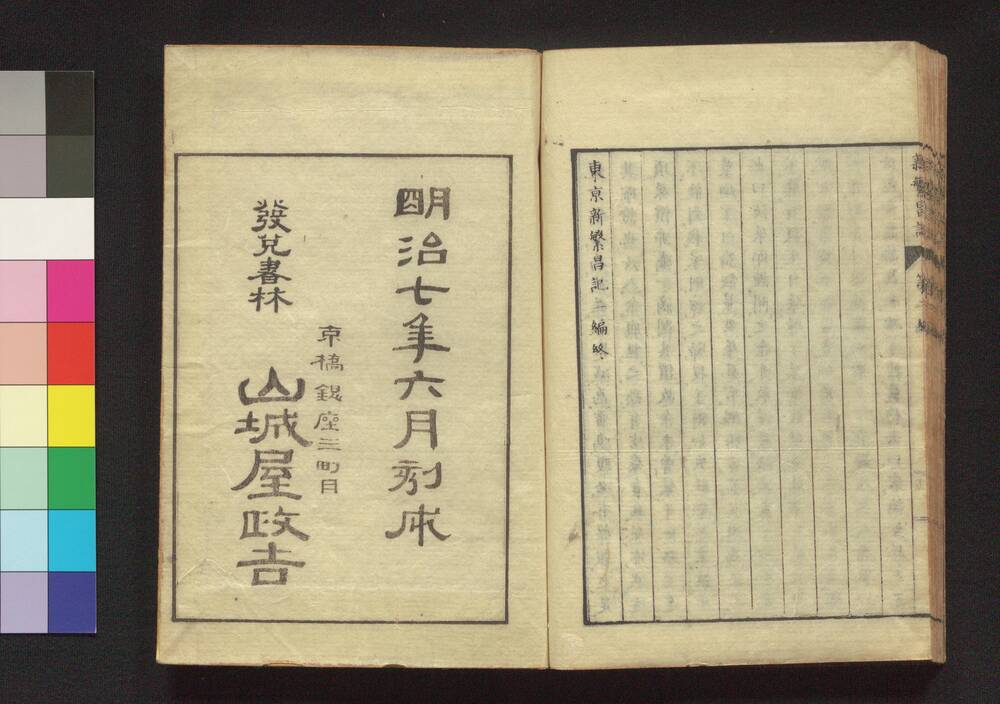 東京新繁昌記 編終
明治七年六月刻成
發兌書林
京橋銀座三町目
山城屋政吉